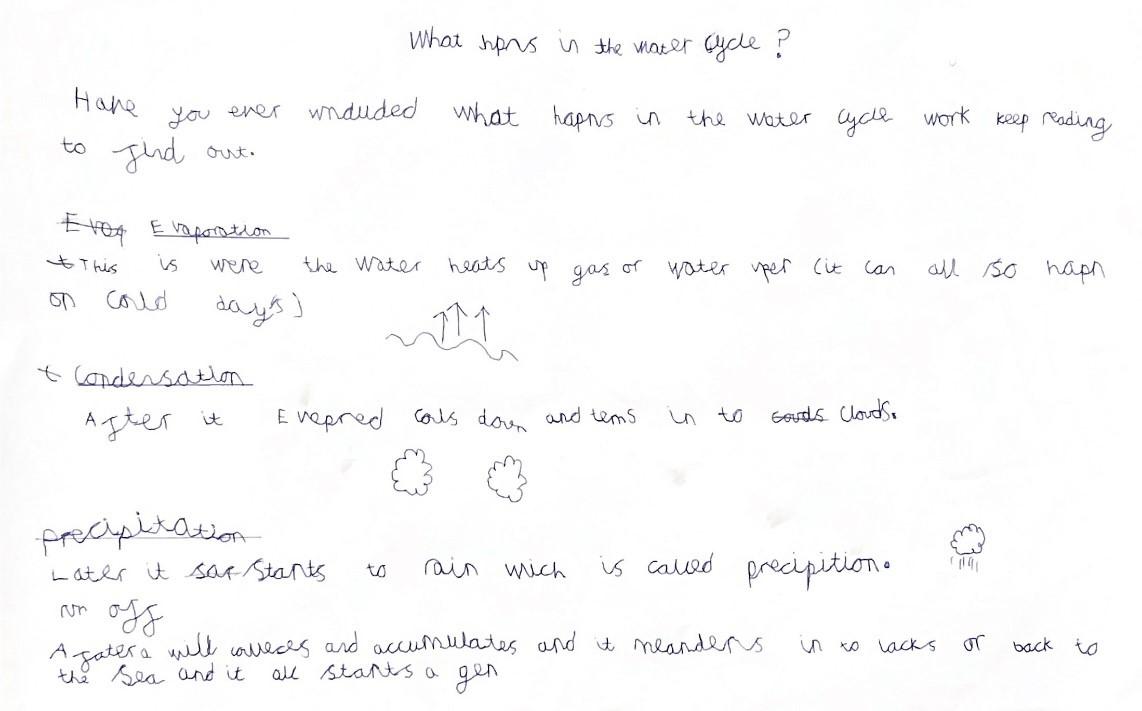 What hpns in the water cycle?
Have you ever wnduded what hapns in the water cycle work keep reading
to find out.
Evaporation
This is were the water heats up gas or water vper (it can all so hapn
on could days)
Condensation
After it Evepred cools down and terns in to clouds.
precipitation
Later it starts to rain wich is called precipition.
run off
Afatera will colleces and accumulates and it meanders in to lacks or back to
the Sea and it all starts a gen